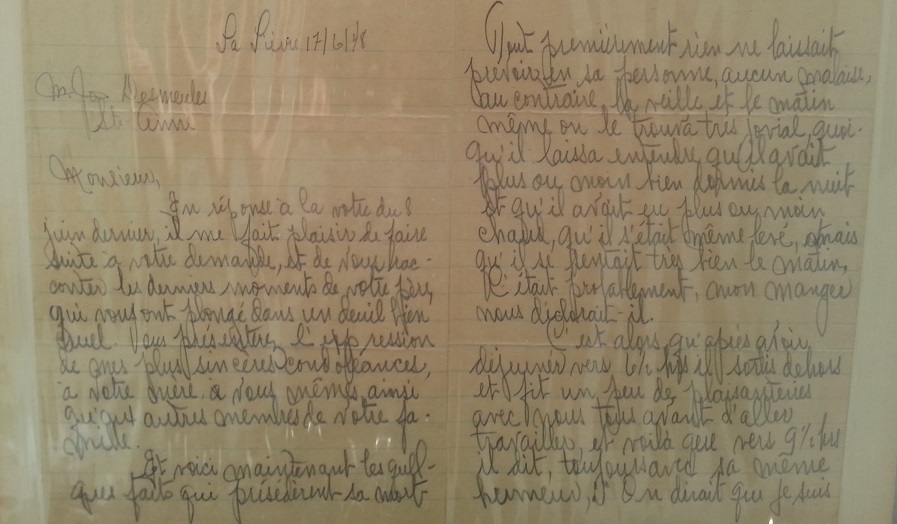 La 17/6/48
M. Jos. Desmeules
Ste Anne
Monsieur,
En réponse a la votre du 8
juin dernier, il me fait plaisir de faire
suite a votre demande, et de vous rac-
conter les derniers moments de votre père,
qui vous ont plongé dans un deuil bien
cruel. Vous l'expression
de mes plus sincères condoléances,
a votre mère, a vous mêmes, ainsi
qu'aux autres membres de votre fa-
mille.
Et voici maintenant les quel-
ques fait qui présédèrent sa mort
Tout premièrement rien ne laissait
prévoir en sa personne, aucun malaise,
au contraire, la veille et le matin
même on le trouva très jovial, quoi-
qu'il laissa entendre, qu'il avait
plus ou moins bien dormis la nuit
et qu'il avait eu plus ou moin
chaud, qu'il s'était même levé, mais
qu'il se sentait très bien le matin,
C'était probablement, mon manger
nous déclarait-il.
C'est alors, qu'après avoir
déjeuner vers 6½ hrs il sortis dehors
et fit un peu de plaisanteries
avec nous tous avant d'aller
travailler, et voilà que vers 9½ hrs
il dit, toujours avec sa même
humeur, On dirait que je suis